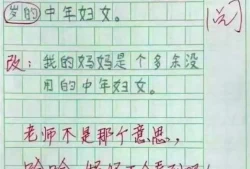 岁的中年妇女。
改：我的妈妈是个多余没
用的中年妇女。
老师不是那个意思，
哈哈